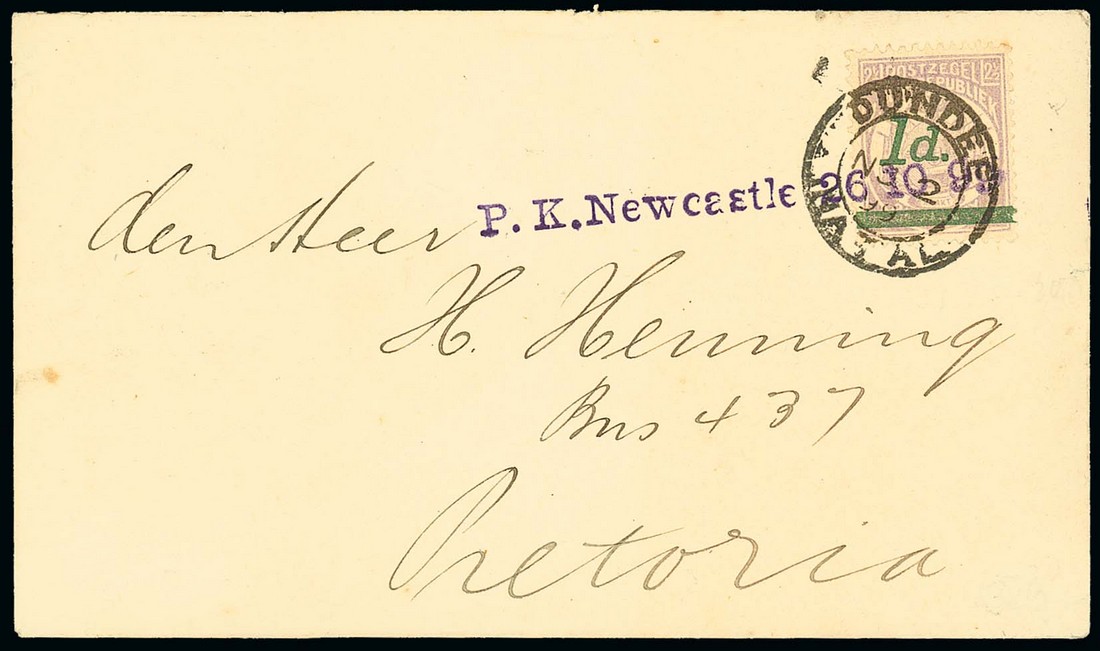 2½ POSTZEGEL 2½
REPUBLIEK
1d.
DUNDEE
NO 2
99
NATAL
P. K. Newcastle 26 10 9
den Heer
H. Henning
Bus 437
Pretoria